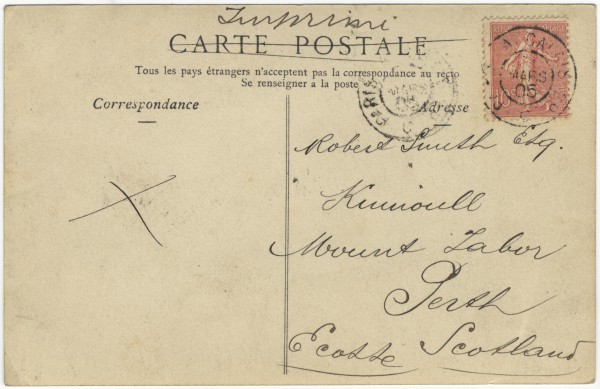 Imprimé
CARTE POSTALE
Tous les pays étrangers n'acceptent pas la correspondance au recto
Se renseigner à la poste
Correspondance
Adresse
PARIS
MARS
05
MARS
05
Robert Smith Esq.
Kinnoull
Mount Tabor
Perth
Ecosse Scotland